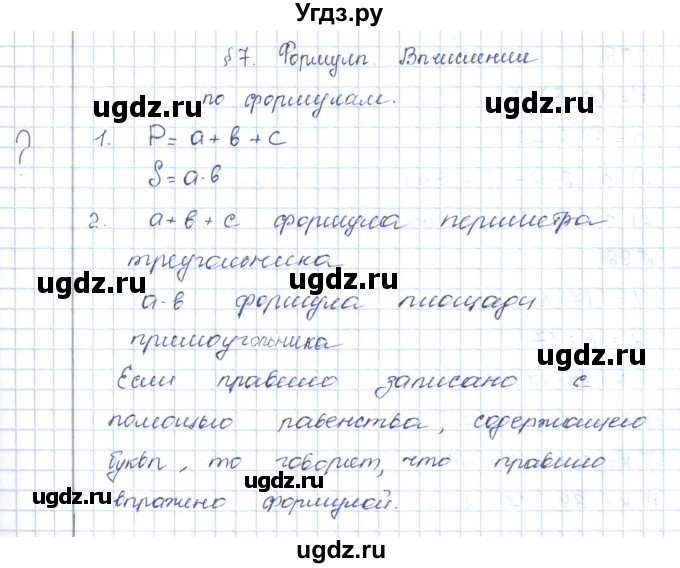 Угдз.ру
§7. Формулы Вычислении
по формулам.
ugdz.ru ugdz.ru
? 1. P = a + b + c
ugdz.ru
S = a·b
2. a + b + c формула периметра
треугольника
ugdz.ru ugdz.ru
a·b формула площади
прямоугольника
ugdz.ru
Если правило записано с
помощью равенства, содержащего
буквы, то говорят, что правило
ugdz.ru ugdz.ru
выражено формулой.
ugdz.ru